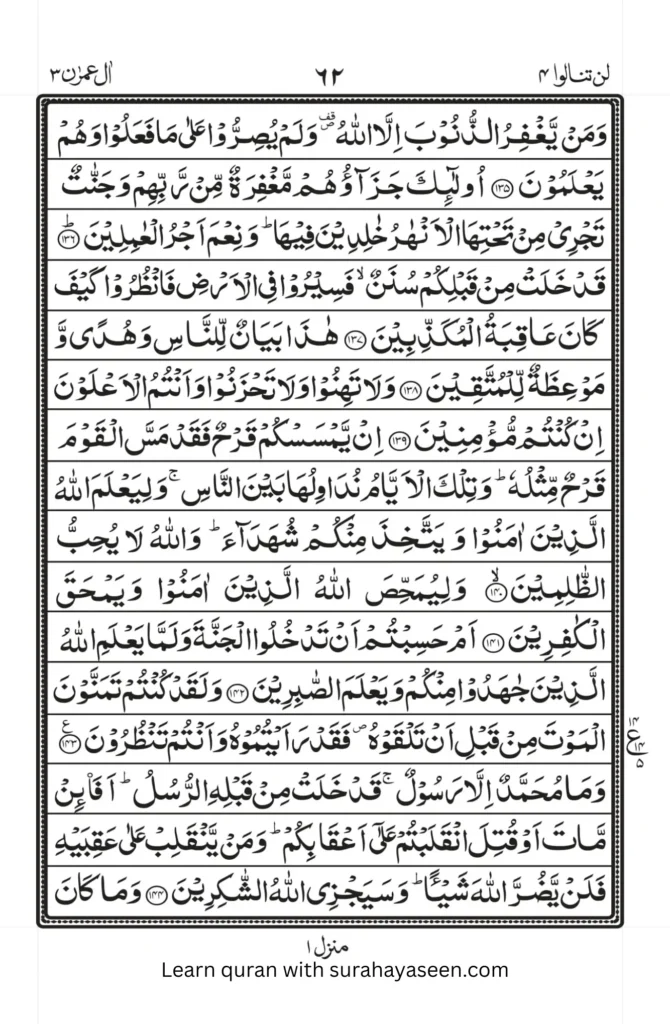 لن تنالوا ۴ ۶۲ اٰل عمرٰن ۳
وَمَنْ يَّغْفِرُ الذُّنُوْبَ اِلَّا اللّٰهُ ۪ۖ وَلَمْ يُصِرُّوْا عَلٰى مَا فَعَلُوْا وَهُمْ
يَعْلَمُوْنَ ﴿۱۳۵﴾ اُولٰٓئِكَ جَزَآؤُهُمْ مَّغْفِرَةٌ مِّنْ رَّبِّهِمْ وَجَنّٰتٌ
تَجْرِيْ مِنْ تَحْتِهَا الْاَنْهٰرُ خٰلِدِيْنَ فِيْهَا ؕ وَنِعْمَ اَجْرُ الْعٰمِلِيْنَ ﴿۱۳۶﴾ؕ
قَدْ خَلَتْ مِنْ قَبْلِكُمْ سُنَنٌ ۙ فَسِيْرُوْا فِي الْاَرْضِ فَانْظُرُوْا كَيْفَ
كَانَ عَاقِبَةُ الْمُكَذِّبِيْنَ ﴿۱۳۷﴾ هٰذَا بَيَانٌ لِّلنَّاسِ وَهُدًى وَّ
مَوْعِظَةٌ لِّلْمُتَّقِيْنَ ﴿۱۳۸﴾ وَلَا تَهِنُوْا وَلَا تَحْزَنُوْا وَاَنْتُمُ الْاَعْلَوْنَ
اِنْ كُنْتُمْ مُّؤْمِنِيْنَ ﴿۱۳۹﴾ اِنْ يَّمْسَسْكُمْ قَرْحٌ فَقَدْ مَسَّ الْقَوْمَ
قَرْحٌ مِّثْلُهٗ ؕ وَتِلْكَ الْاَيَّامُ نُدَاوِلُهَا بَيْنَ النَّاسِ ۚ وَلِيَعْلَمَ اللّٰهُ
الَّذِيْنَ اٰمَنُوْا وَيَتَّخِذَ مِنْكُمْ شُهَدَآءَ ؕ وَاللّٰهُ لَا يُحِبُّ
الظّٰلِمِيْنَ ﴿۱۴۰﴾ۙ وَلِيُمَحِّصَ اللّٰهُ الَّذِيْنَ اٰمَنُوْا وَيَمْحَقَ
الْكٰفِرِيْنَ ﴿۱۴۱﴾ اَمْ حَسِبْتُمْ اَنْ تَدْخُلُوا الْجَنَّةَ وَلَمَّا يَعْلَمِ اللّٰهُ
الَّذِيْنَ جٰهَدُوْا مِنْكُمْ وَيَعْلَمَ الصّٰبِرِيْنَ ﴿۱۴۲﴾ وَلَقَدْ كُنْتُمْ تَمَنَّوْنَ
الْمَوْتَ مِنْ قَبْلِ اَنْ تَلْقَوْهُ ۪ فَقَدْ رَاَيْتُمُوْهُ وَاَنْتُمْ تَنْظُرُوْنَ ﴿۱۴۳﴾ ع
۱۴ ع ۱۴ ۵
وَمَا مُحَمَّدٌ اِلَّا رَسُوْلٌ ۚ قَدْ خَلَتْ مِنْ قَبْلِهِ الرُّسُلُ ؕ اَفَا۟ئِنْ
مَّاتَ اَوْ قُتِلَ انْقَلَبْتُمْ عَلٰٓى اَعْقَابِكُمْ ؕ وَمَنْ يَّنْقَلِبْ عَلٰى عَقِبَيْهِ
فَلَنْ يَّضُرَّ اللّٰهَ شَيْـًٔا ؕ وَسَيَجْزِي اللّٰهُ الشّٰكِرِيْنَ ﴿۱۴۴﴾ وَمَا كَانَ
منزل ۱
Learn quran with surahayaseen.com